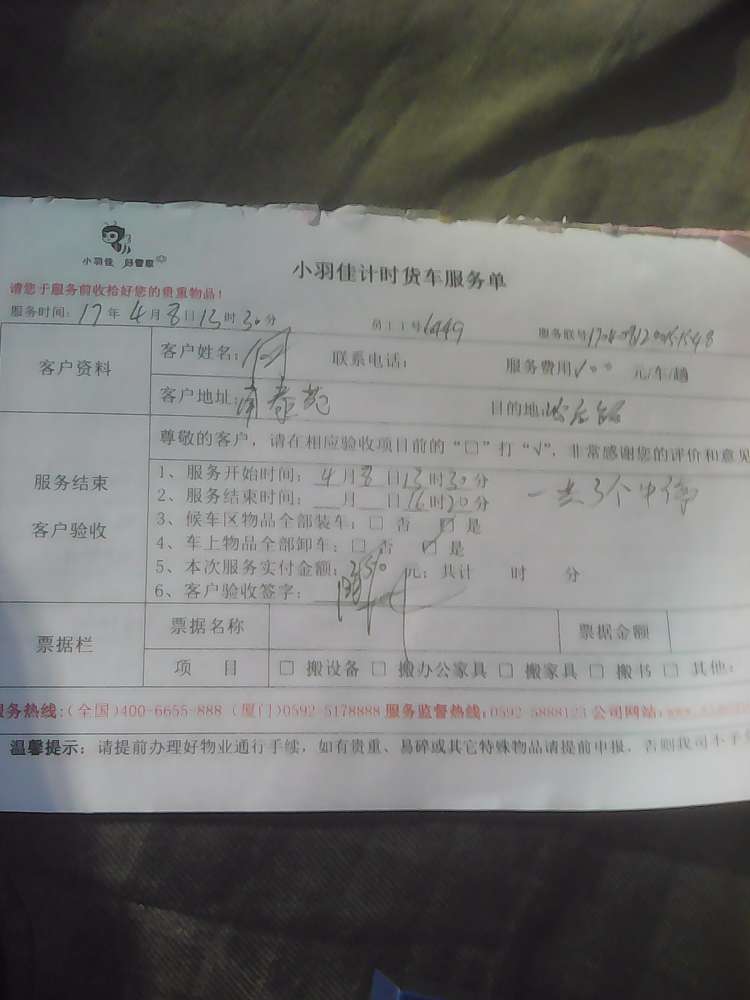 小羽佳 好管家
小羽佳计时货车服务单
请您于服务前收拾好您的贵重物品！
服务时间：17年4月8日13时30分 员工工号6449 服务联号
客户资料
客户姓名：何 联系电话： 服务费用 元/车/趟
客户地址： 目的地：
服务结束
客户验收
尊敬的客户，请在相应验收项目前的“□”打“√”，非常感谢您的评价和意见
1、服务开始时间：4月8日13时30分
2、服务结束时间：__月__日16时30分 一共3个小时
3、候车区物品全部装车：□ 否 □ 是
4、车上物品全部卸车：□ 否 ☑ 是
5、本次服务实付金额：350元；共计 时 分
6、客户验收签字：
票据栏
票据名称 票据金额
项 目 □ 搬设备 □ 搬办公家具 □ 搬家具 □ 搬书 □ 其他：
服务热线：(全国)400-6655-888 (厦门)0592-5178888 服务监督热线：0592-5888123 公司网站：
温馨提示：请提前办理好物业通行手续，如有贵重、易碎或其它特殊物品请提前申报，否则我司不予